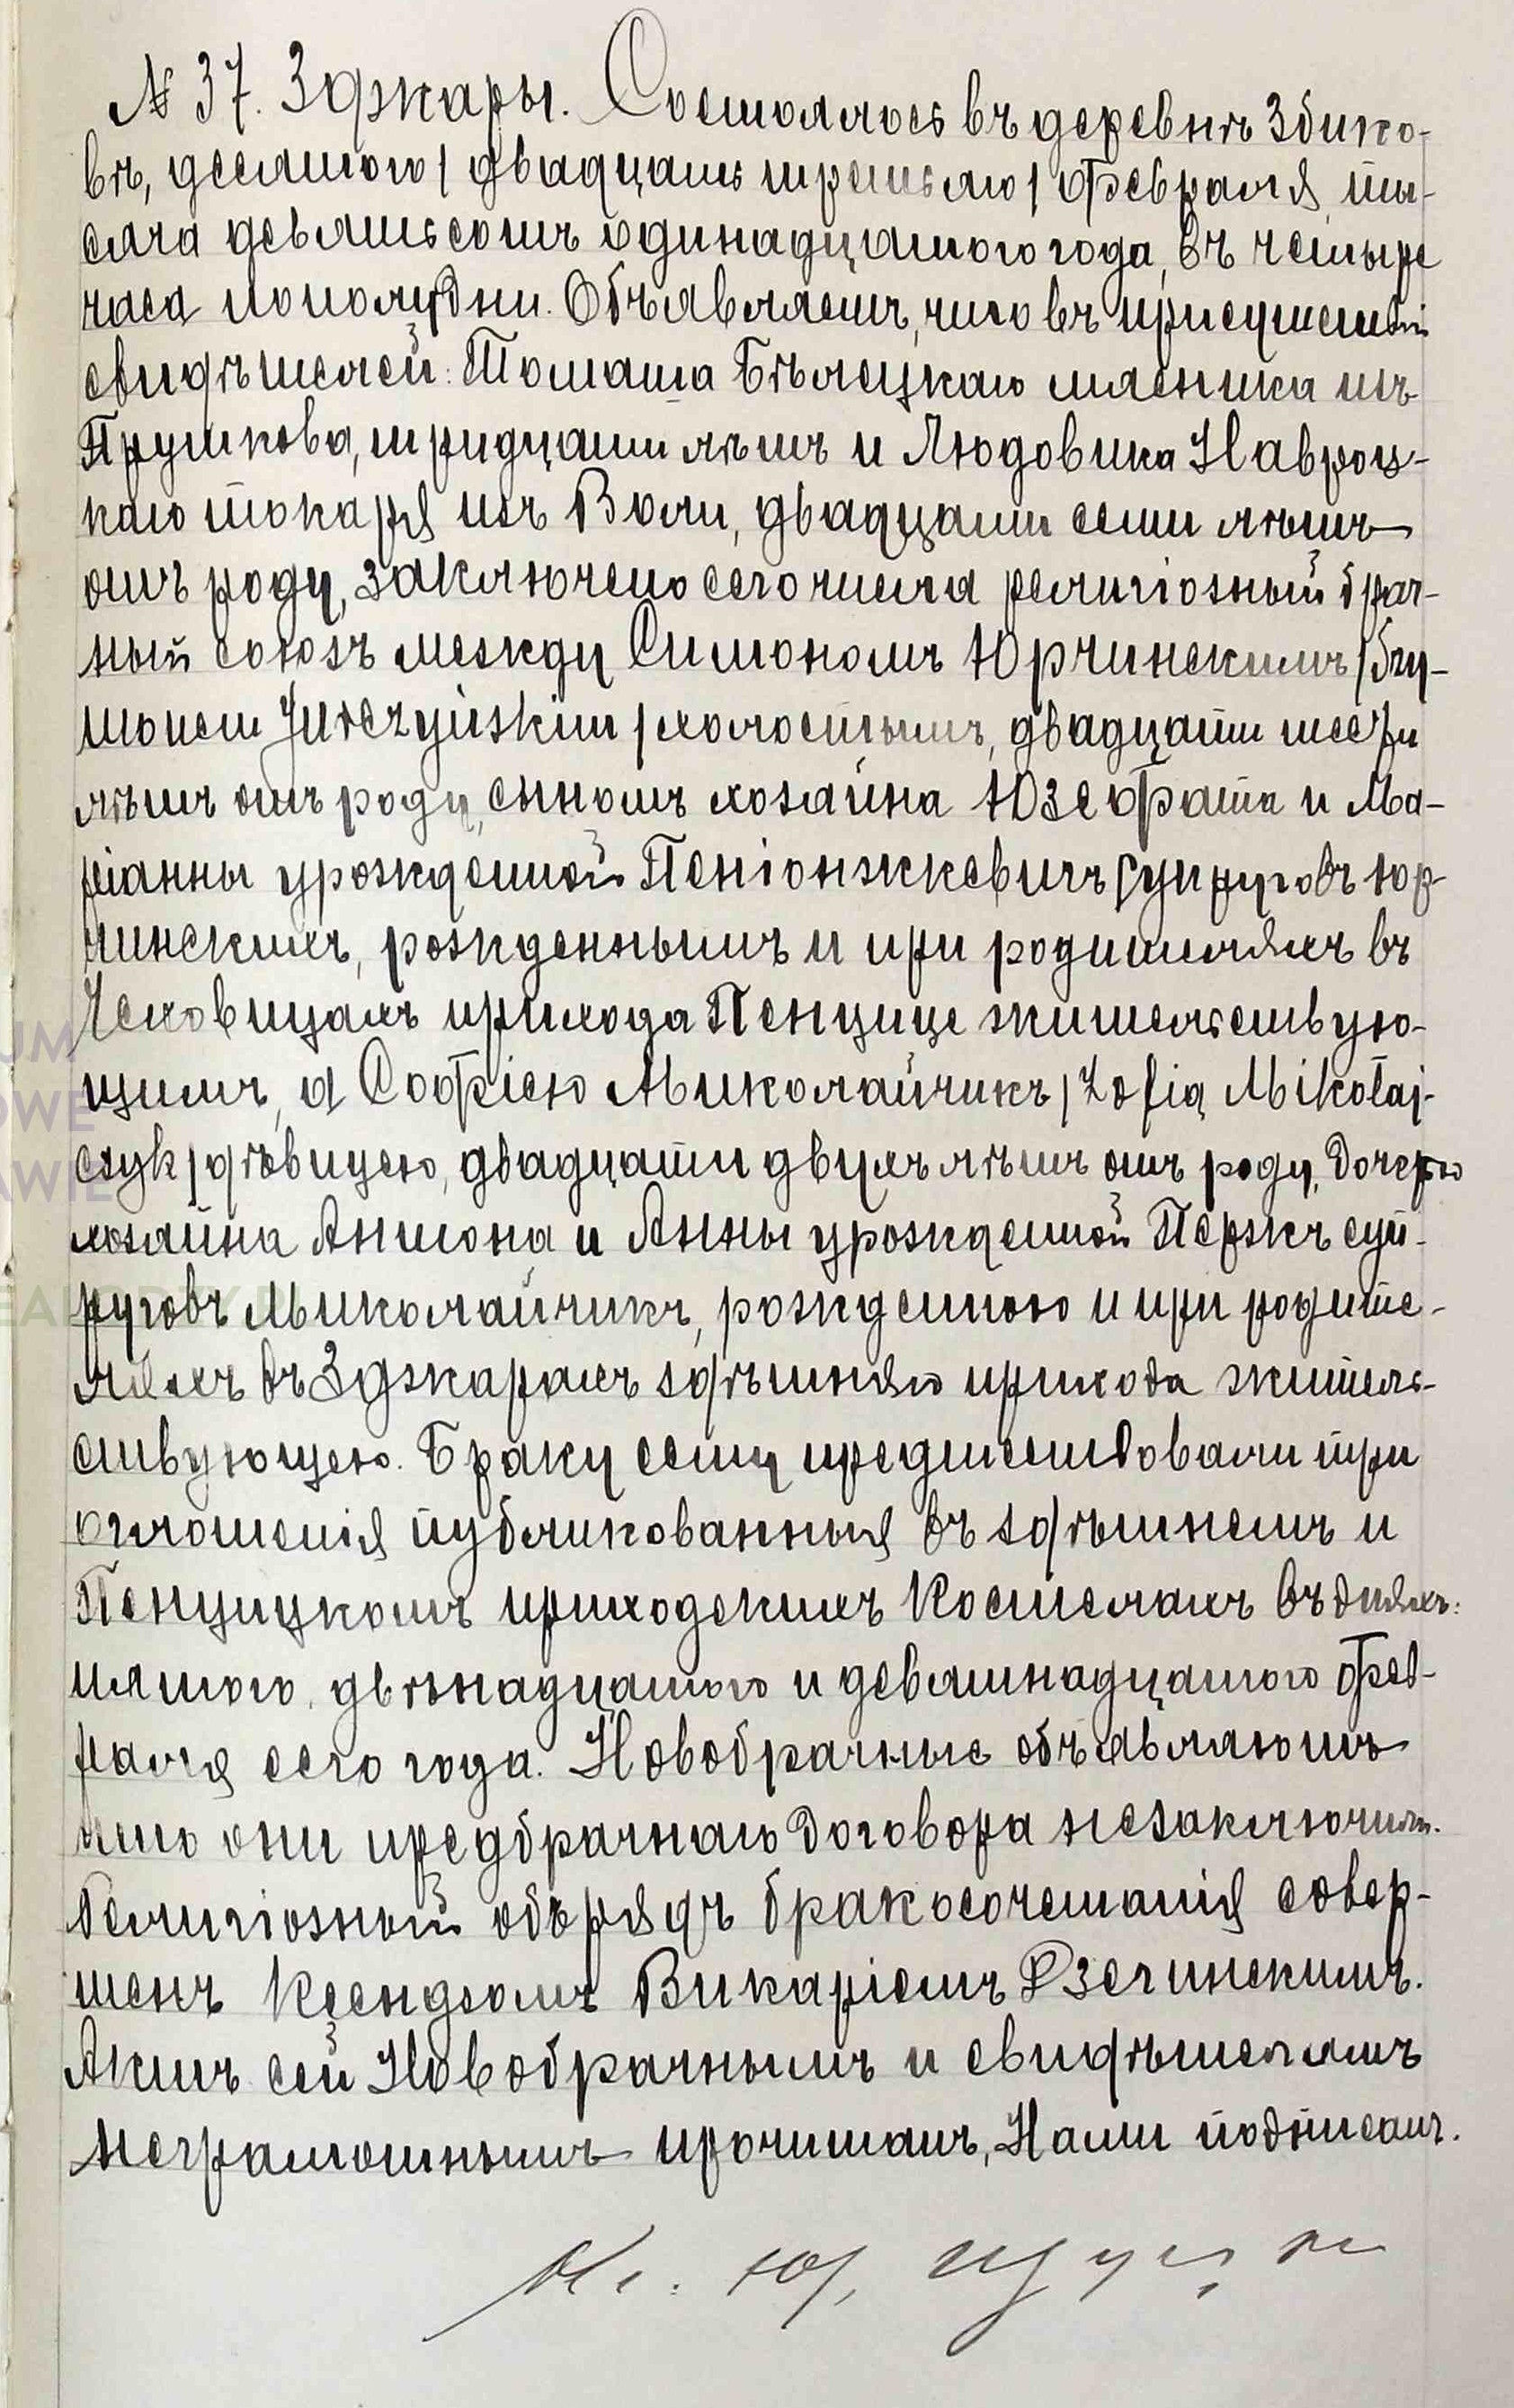 № 37. Зджары. Состоялось въ деревнѣ Збико-
вѣ, десятого / двадцать третьяго / февраля, ты-
сяча девятьсотъ одинадцатого года, въ четыре
часа пополудни. Объявляемъ, что въ присутствіи
свидѣтелей: Томаша Бѣлецкаго мясника изъ
Прушкова, тридцати лѣтъ и Людовика Навроц-
каго токаря изъ Воли, двадцати семи лѣтъ
отъ роду, заключено сего числа религіозный брач-
ный союзъ между Симономъ Юрчинскимъ /Szy-
monem Jurczyńskim / холостымъ, двадцати шести
лѣтъ отъ роду, сыномъ хозяина Юзефата и Ма-
ріанны урожденной Пеніонжкевичъ супруговъ Юр-
чинскихъ, рожденнымъ и при родителяхъ въ
Чеховицахъ прихода Пенцице жительствую-
щимъ, а Софіею Миколайчикъ / Zofią Mikołaj-
czyk / дѣвицею, двадцати двухъ лѣтъ отъ роду, дочерью
хозяина Антона и Анны урожденной Пержъ суп-
руговъ Миколайчикъ, рожденною и при родите-
ляхъ въ Зджарахъ здѣшняго прихода житель-
ствующею. Браку сему предшествовали три
оглошенія публикованныя въ здѣшнемъ и
Пенцицкомъ приходскихъ Костелахъ въ дняхъ:
пятого, двѣнадцатого и девятнадцатого фев-
раля сего года. Новобрачные объявляютъ
что они предбрачнаго договора незаключили.
Религіозной обърядъ бракосочетанія совер-
шенъ Ксендзомъ Викаріемъ Рзечинскимъ.
Актъ сей Новобрачнымъ и свидѣтелямъ
неграмотнымъ прочитанъ, Нами подписанъ.